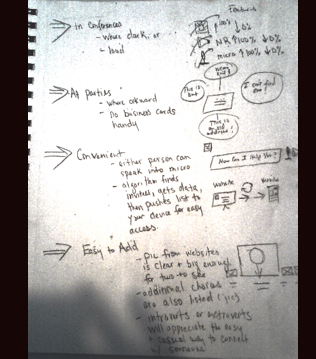 In Conferences
- where dark, or
- loud
Features
100% ↓0%
NR ↑100% ↓0%
micro ↑100% ↓0%
At parties
- where akward
- no business cards
handy
This is
but
I can't find
This is
an old
address!
Convenient
- either person can
speak into micro
- algorithm finds
invitees, gets data,
then pushes list to
your device for easy
access.
How Can I Help You?
Website
Easy to Add
- pic from websites
is clear + big enough
for two to see
- additional chars
are also listed
- introverts or extroverts
will appreciate the easy
+ casual way to connect
w/ someone